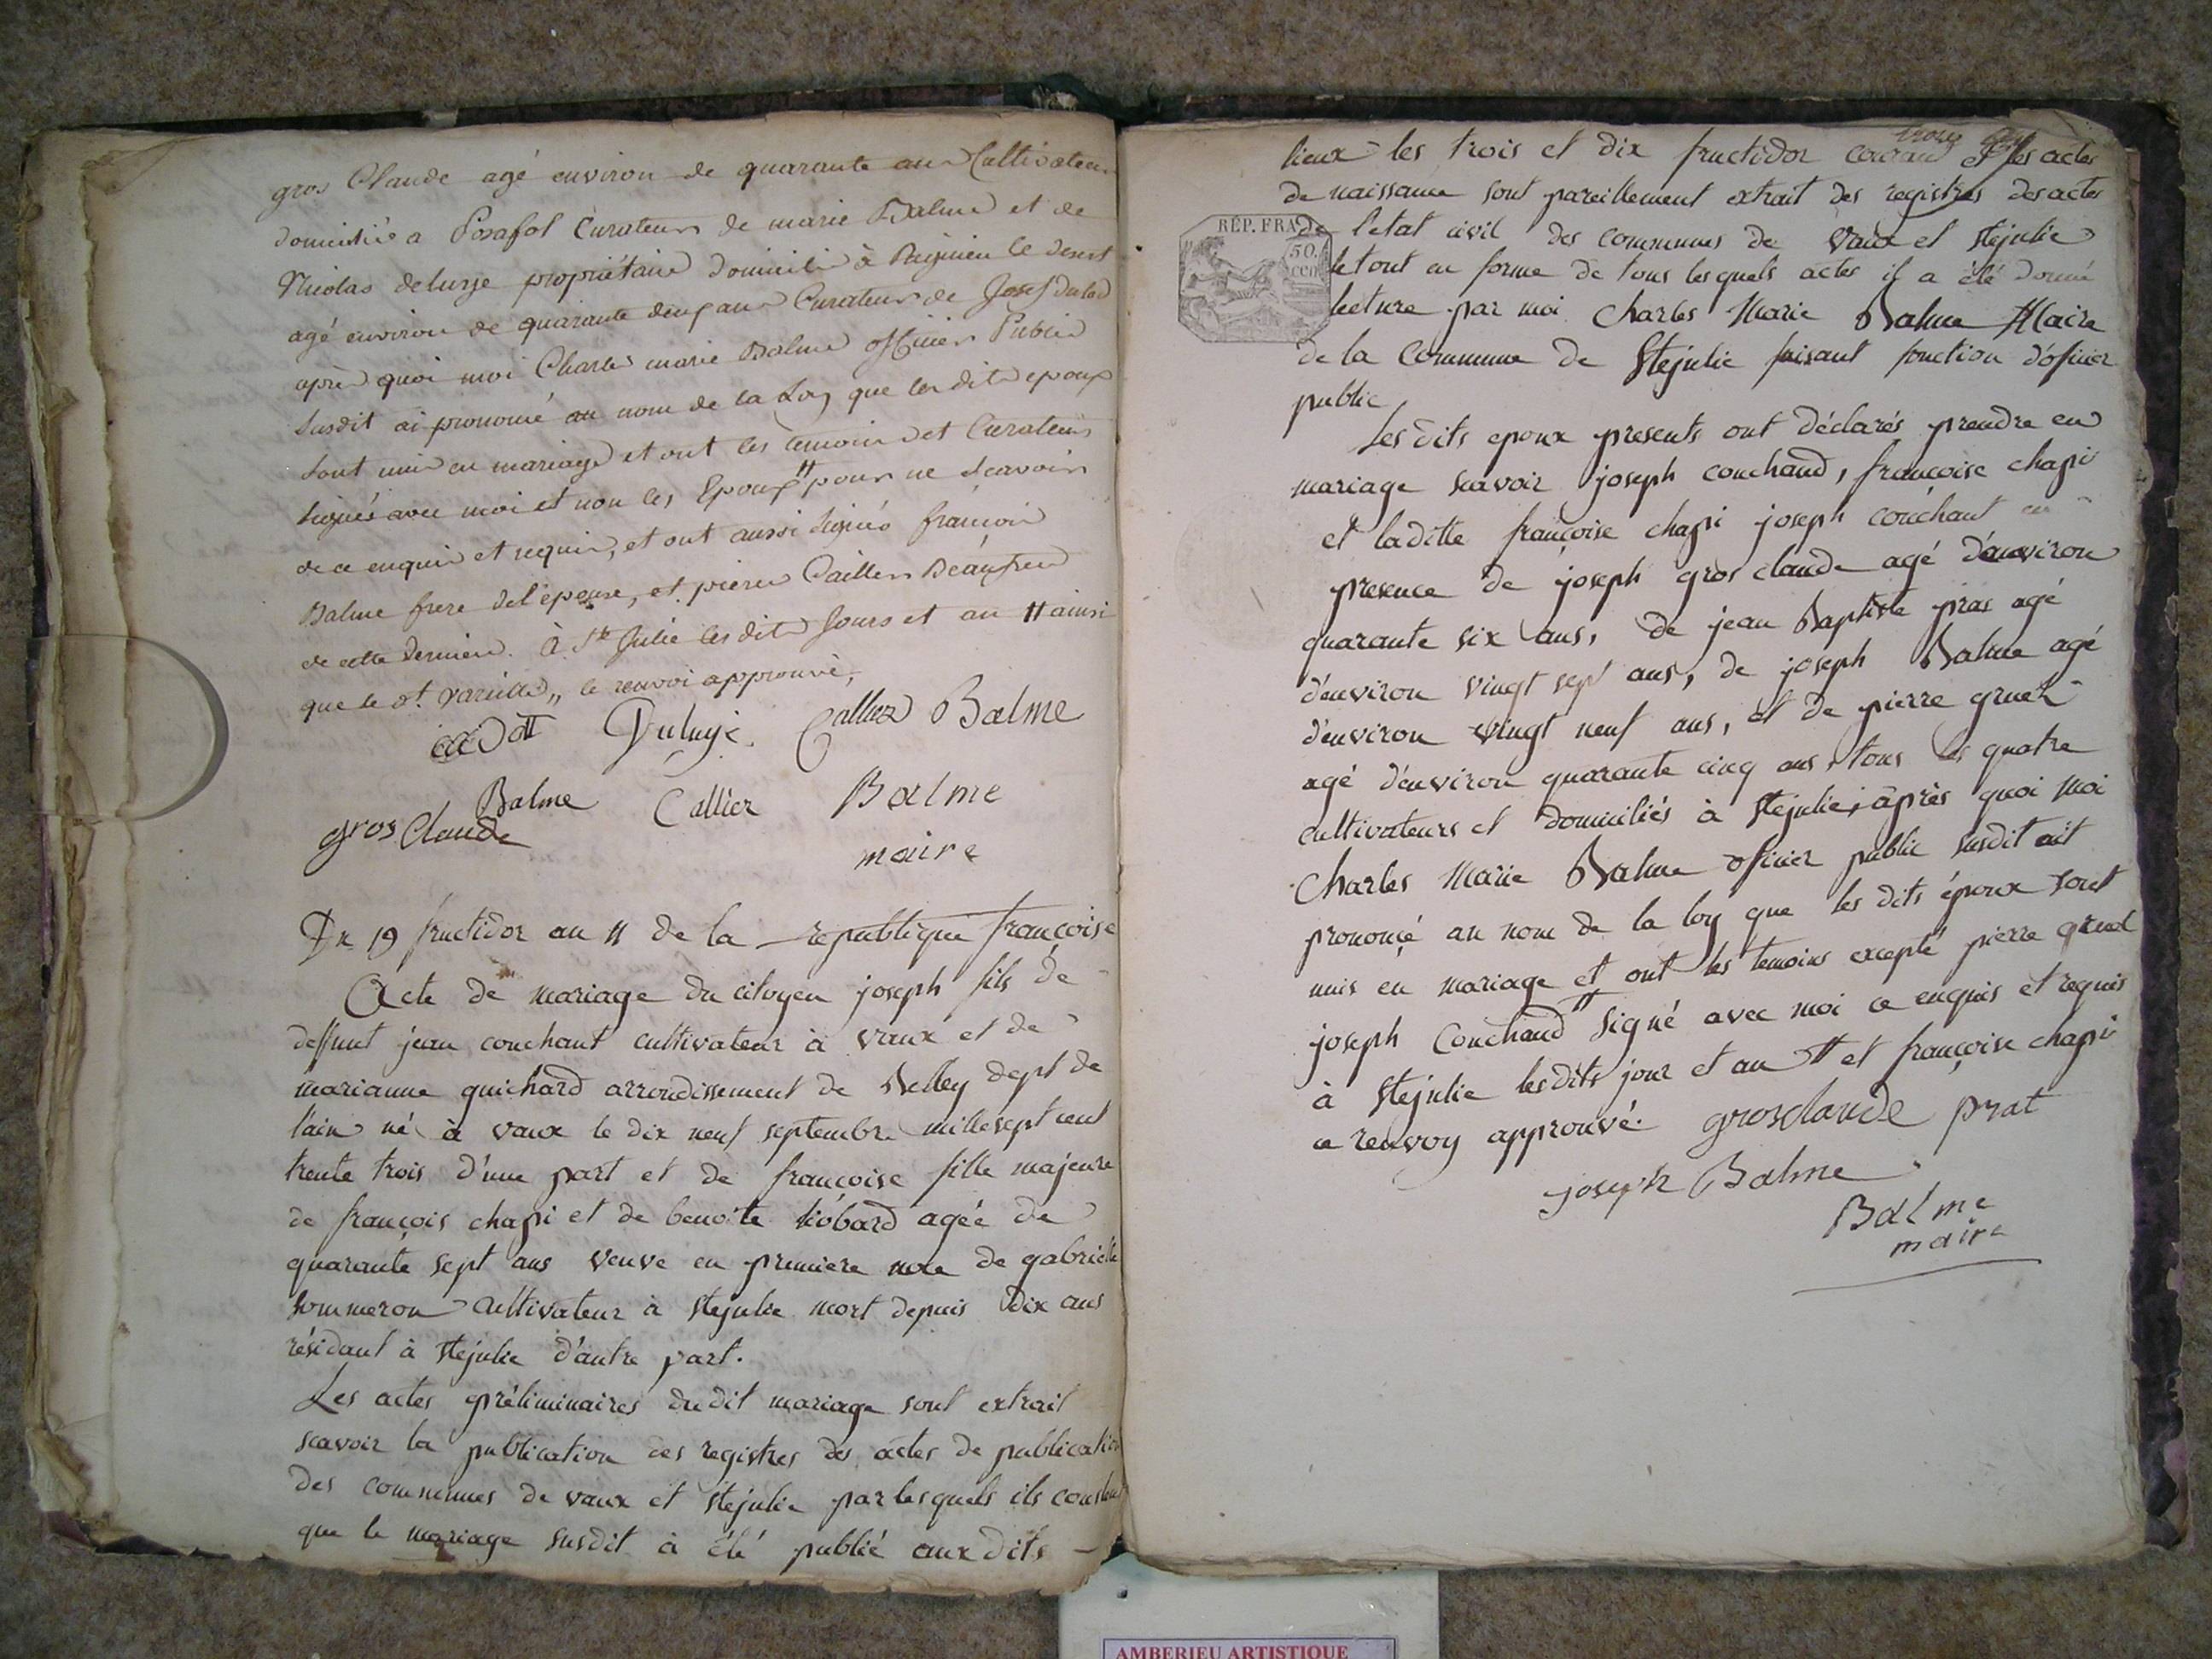 gros Claude agé environ de quarante ans Cultivateur
domicilié a Posafol Curateur de marie Balme et de
Nicolas delurge propriétaire domicilié à Rignieu le desert
agé environ de quarante deux ans Curateur de Josef
après quoi moi Charles marie Balme officier Public
susdit ai prononcé au nom de la Loy que les dits epoux
sont unis en mariage et ont les temoins et Curateurs
signés avec moi et non les Epoux # pour ne scavoir
de ce enquis et requis, et ont aussi signés françois
Balme frere del'epouse, et pierre Caillier Beaufrere
de cette derniere. à Ste Julie les dits Jours et an # ainsi
que le st. le renvoi approuvé,
Callier Balme
Balme Callier Balme
gros Claude
maire
Du 19 fructidor an 11 de la republique françoise
Acte de mariage du citoyen joseph fils de
deffunt jean couchant cultivateur à vaux et de
marianne guichard arrondissement de Belley dept de
l'ain né à vaux le dix neuf septembre mille sept cent
trente trois d'une part et de françoise fille majeure
de françois chapi et de benoite liobard agée de
quarante sept ans veuve en premiere noce de gabrielle
sommeron cultivateur à stejulie mort depuis dix ans
résidant à stejulie d'autre part.
Les actes préliminaires dudit mariage sont extrait
scavoir la publication des registres des actes de publication
des communes de vaux et stejulie par lesquels ils constent
que le mariage susdit à été publié aux dits
lieux les trois et dix fructidor courant et les actes
de naissance sont pareillement extrait des registres des actes
RÉP. FRA. de l'etat civil des communes de vaux et stejulie
50. le tout en forme de tous lesquels actes il a été donné
lecture par moi Charles Marie Balme Maire
de la Commune de Stejulie faisant fonction d'oficier
public
Les dits epoux presents ont déclarés prendre en
mariage scavoir joseph couchand, françoise chapi
et laditte françoise chapi joseph couchant en
presence de joseph gros claude agé d'environ
quarante six ans, de jean Baptiste pras agé
d'environ vingt sept ans, de joseph Balme agé
d'environ vingt neuf ans, et de pierre gruel
agé d'environ quarante cinq ans, tous les quatre
cultivateurs et domiciliés à stejulie, après quoi moi
Charles Marie Balme oficier public susdit ait
prononcé au nom de la loy que les dits époux sont
unis en mariage et ont les temoins excepté pierre gruel
joseph Couchand # signé avec moi ce enquis et requis
à Stejulie lesdits jour et an # et françoise chapi
ce renvoy approuvé. grosclaude prat
joseph Balme
Balme
maire
AMBERIEU ARTISTIQUE